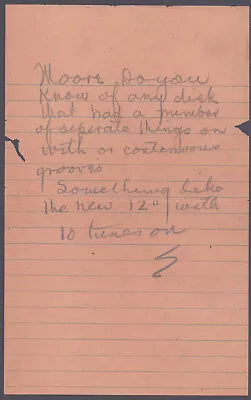 Moore Do you
Know of any disk
that had a number
of seperate things on
with or contenuous
grooves
Something like
the new 12" with
10 tunes on